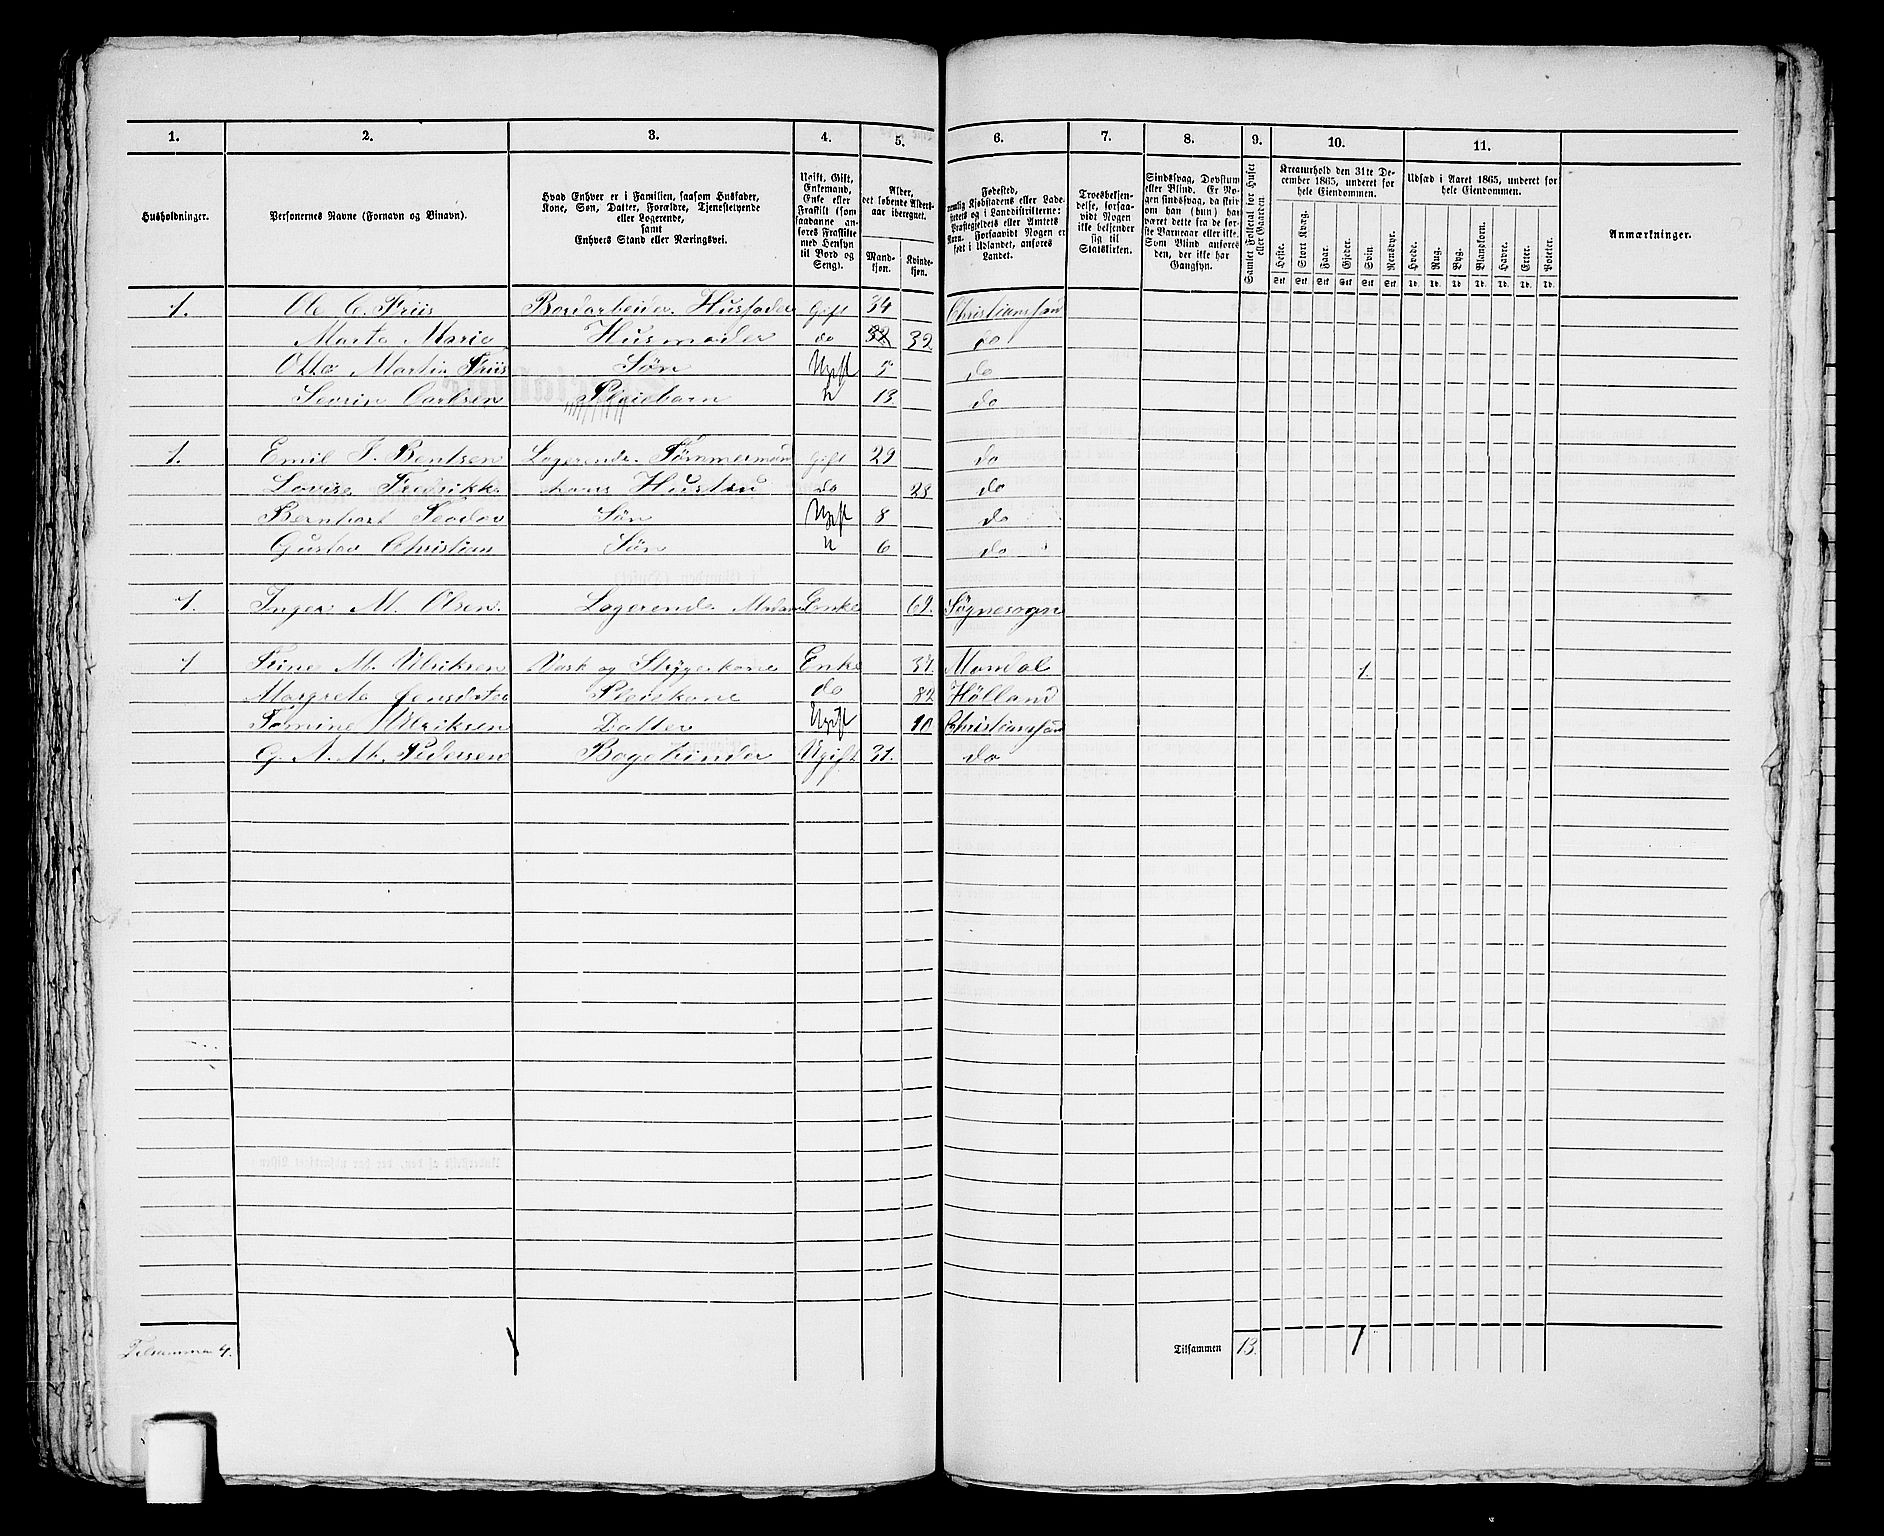 1. 2. 3. 4. 5. 6. 7. 8. 9. 10. 11.
Husholdninger.
Personernes Navne (Fornavn og Binavn).
Hvad Enhver er i Familien, saasom Husfader,
Kone, Søn, Datter, Forældre, Tjenestetyende
eller Logerende,
samt
Enhvers Stand eller Næringsvei.
Ugift, Gift,
Enkemand,
Enke eller
Fraskilt (som
saadanne an-
føres Fraskilte
med Hensyn
til Bord og
Seng).
Alder,
det løbende Alders-
aar iberegnet.
Mand-
kjøn.
Kvinde-
kjøn.
Fødested,
nemlig Kjøbstadens eller Lade-
stedets og i Landdistrikterne:
Præstegjeldets eller Amtets
Navn. Forsaavidt Nogen er
født i Udlandet, anføres
Landet.
Troesbekjen-
delse, forsaa-
vidt Nogen
ikke bekjender
sig til
Statskirken.
Sindssvag, Døvstum
eller Blind. Er No-
gen sindssvag, da skriv
om han (hun) har
været dette fra de før-
ste Barneaar eller ikke.
Som Blind anføres
den, der ikke har
Gangsyn.
Samlet Folketal for Huset
eller Gaarden.
Kreaturhold den 31te De-
cember 1865, underet for
hele Eiendommen.
Heste. Stort Kvæg. Faar. Gjeder. Svin. Rensdyr.
Stk Stk Stk Stk Stk Stk
Udsæd i Aaret 1865, underet for
hele Eiendommen.
Hvede. Rug. Byg. Blandkorn. Havre. Erter. Poteter.
Td. Td. Td. Td. Td. Td. Td.
Anmærkninger.
1. Ole C. Friis Bordarbeider Husfader Gift 34 Christianssand
Marte Marie Husmoder do 32 32 do
Otto Martin Friis Søn Ugift 5 do
Sevrin Carlsen Pleiebarn " 13 do
1. Emil J. Bentsen Logerende Tømmermand Gift 29 do
Lovise Fredrikke hans Hustru do 28 do
Bernhart Teodor Søn Ugift 8 do
Gustav Christian Søn " 6 do
1. Inger M. Olsen Logerende Madam Enke 69. Søgnesogn
1 Trine M. Ulriksen Vask og Strygekone Enke 37. Mandal 1.
Margrete Jensdatter Pleiekone do 82 Hølland
Tomine Ulriksen Datter Ugift 10 Christianssand
G. A. M. Pedersen Bogbinder Ugift 31. do
Tilsammen 4. Tilsammen 13. 1